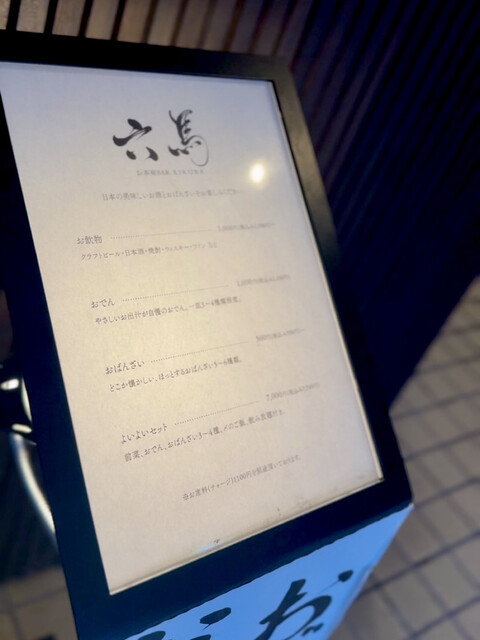 六馬
日本の美味しいお酒とおばんざいをお楽しみください。
お飲物
クラフトビール・日本酒・焼酎・ウィスキー・ワイン など
おでん
やさしいお出汁が自慢のおでん。一皿3〜4種類程度。
おばんざい
どこか懐かしい、ほっとするおばんざい3〜4種類。
よいよいセット
前菜、おでん、おばんざい3〜4種、〆のご飯、飲み放題付き。
※お席料(チャージ)1100円を別途頂いております。